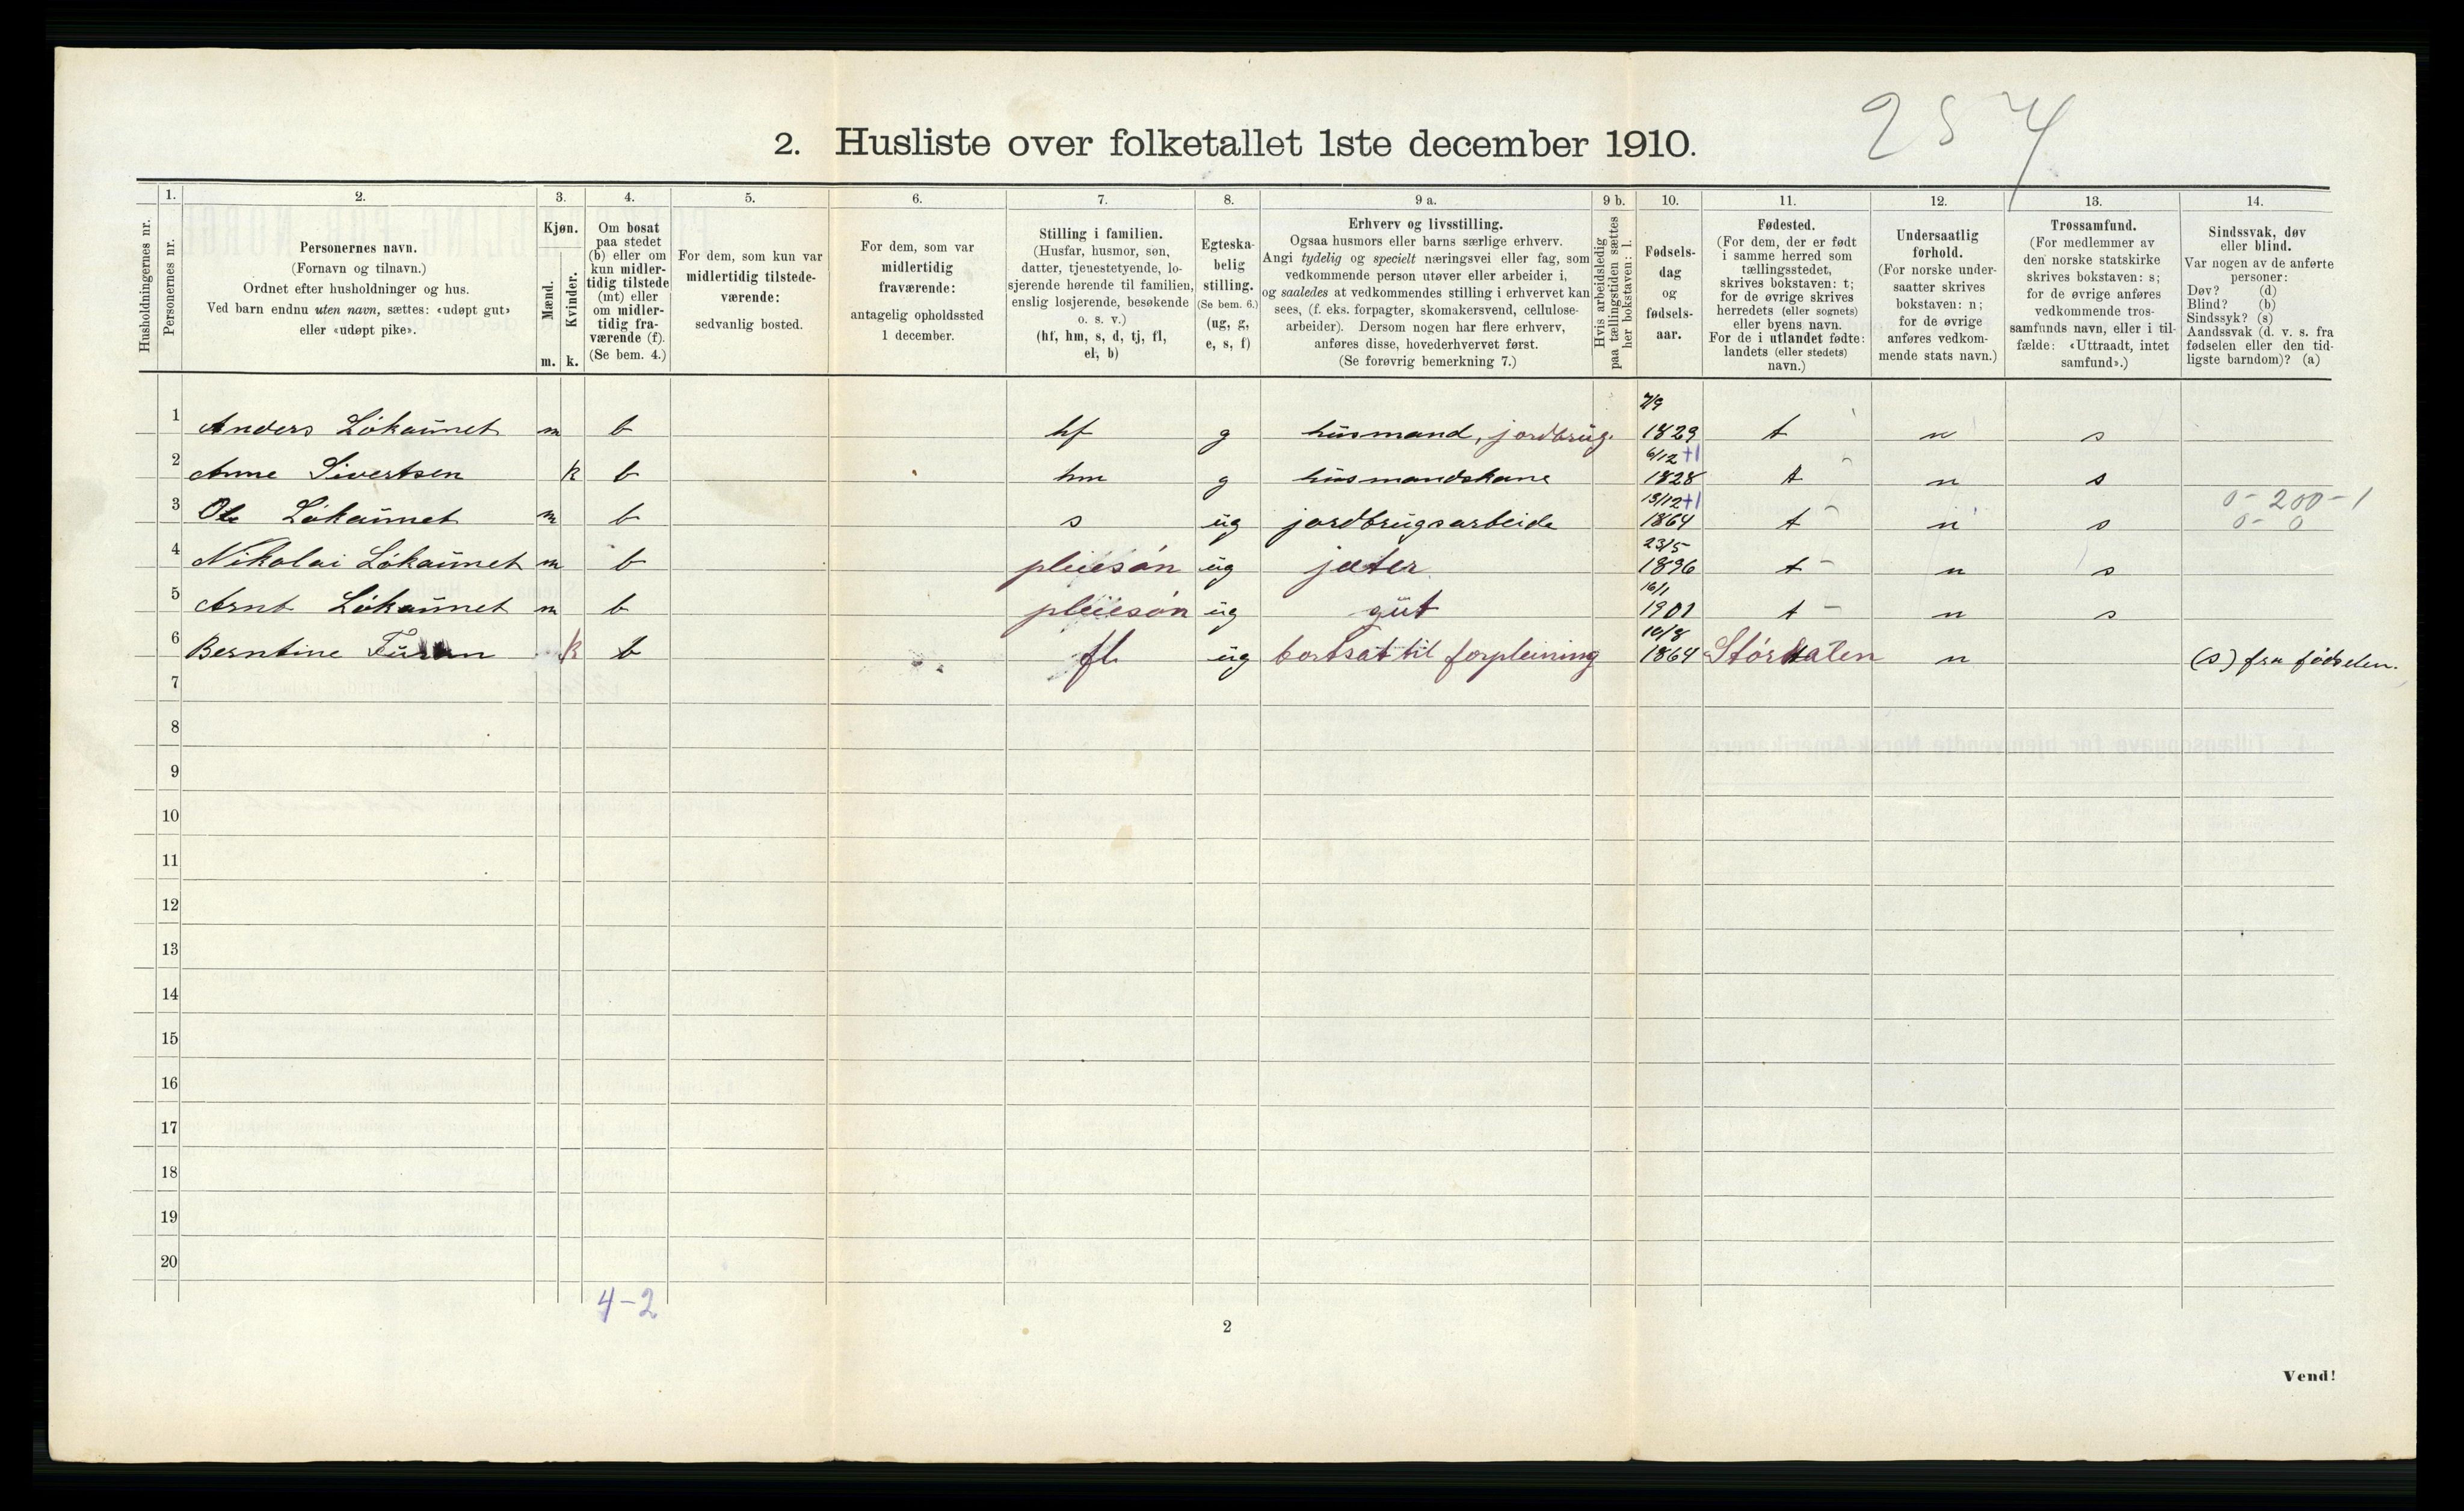 2. Husliste over folketallet 1ste december 1910.
257
1. 2. 3. 4. 5. 6. 7. 8. 9 a. 9 b. 10. 11. 12. 13. 14.
Husholdningernes nr.
Personernes nr.
Personernes navn.
(Fornavn og tilnavn.)
Ordnet efter husholdninger og hus.
Ved barn endnu uten navn, sættes: «udøpt gut»
eller «udøpt pike».
Kjøn.
Mænd.
Kvinder.
m. k.
Om bosat
paa stedet
(b) eller om
kun midler-
tidig tilstede
(mt) eller
om midler-
tidig fra-
værende (f).
(Se bem. 4.)
For dem, som kun var
midlertidig tilstede-
værende:
sedvanlig bosted.
For dem, som var
midlertidig
fraværende:
antagelig opholdssted
1 december.
Stilling i familien.
(Husfar, husmor, søn,
datter, tjenestetyende, lo-
sjerende hørende til familien,
enslig losjerende, besøkende
o. s. v.)
(hf, hm, s, d, tj, fl,
el, b)
Egteska-
belig
stilling.
(Se bem. 6.)
(ug, g,
e, s, f)
Erhverv og livsstilling.
Ogsaa husmors eller barns særlige erhverv.
Angi tydelig og specielt næringsvei eller fag, som
vedkommende person utøver eller arbeider i,
og saaledes at vedkommendes stilling i erhvervet kan
sees, (f. eks. forpagter, skomakersvend, cellulose-
arbeider). Dersom nogen har flere erhverv,
anføres disse, hovederhvervet først.
(Se forøvrig bemerkning 7.)
Hvis arbeidsledig
paa tællingstiden sættes
her bokstaven: l.
Fødsels-
dag
og
fødsels-
aar.
Fødested.
(For dem, der er født
i samme herred som
tællingsstedet,
skrives bokstaven: t;
for de øvrige skrives
herredets (eller sognets)
eller byens navn.
For de i utlandet fødte:
landets (eller stedets)
navn.)
Undersaatlig
forhold.
(For norske under-
saatter skrives
bokstaven: n;
for de øvrige
anføres vedkom-
mende stats navn.)
Trossamfund.
(For medlemmer av
den norske statskirke
skrives bokstaven: s;
for de øvrige anføres
vedkommende tros-
samfunds navn, eller i til-
fælde: «Uttraadt, intet
samfund».)
Sindssvak, døv
eller blind.
Var nogen av de anførte
personer:
Døv? (d)
Blind? (b)
Sindssyk? (s)
Aandssvak (d. v. s. fra
fødselen eller den tid-
ligste barndom)? (a)
1 Anders Lökaunet m b hf g husmand, jordbrug. 7/9 1829 t n s
2 Anne Sivertsen k b hm g husmandskone 6/12 +1 1828 t n s
3 Ole Lökaunet m b s ug jordbrugsarbeide 13/12 +1 1864 t n s 0-200-1
0-0
4 Nikolai Lökaunet m b pleiesön ug jæter 23/5 1896 t n s
5 Arnt Lökaunet m b pleiesön ug gut 16/1 1901 t n s
6 Berntine k b fl ug bortsat til forpleining 10/8 1864 n (s) fra fødselen.
7
8
9
10
11
12
13
14
15
16
17
18
19
20
4-2
2
Vend!